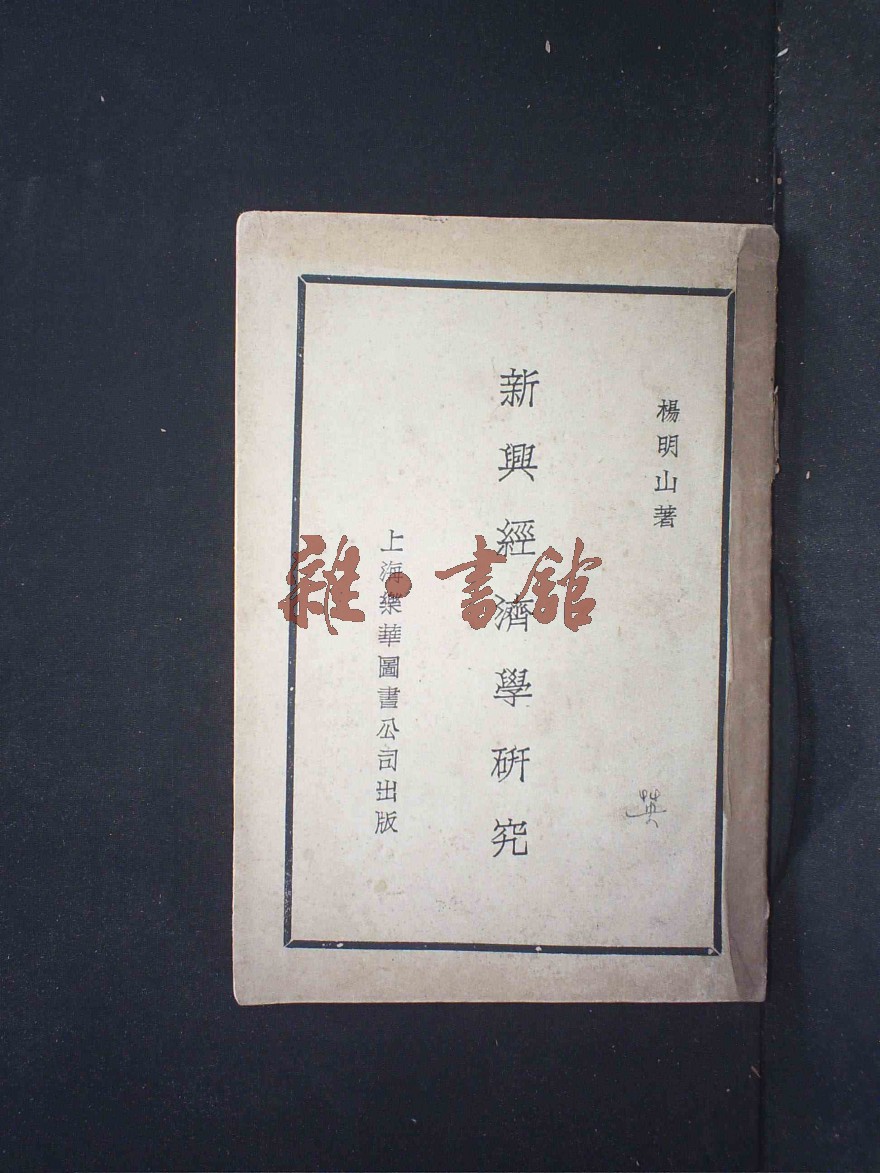 楊明山著
新興經濟學硏究
上海樂華圖書公司出版
雜·書館
英